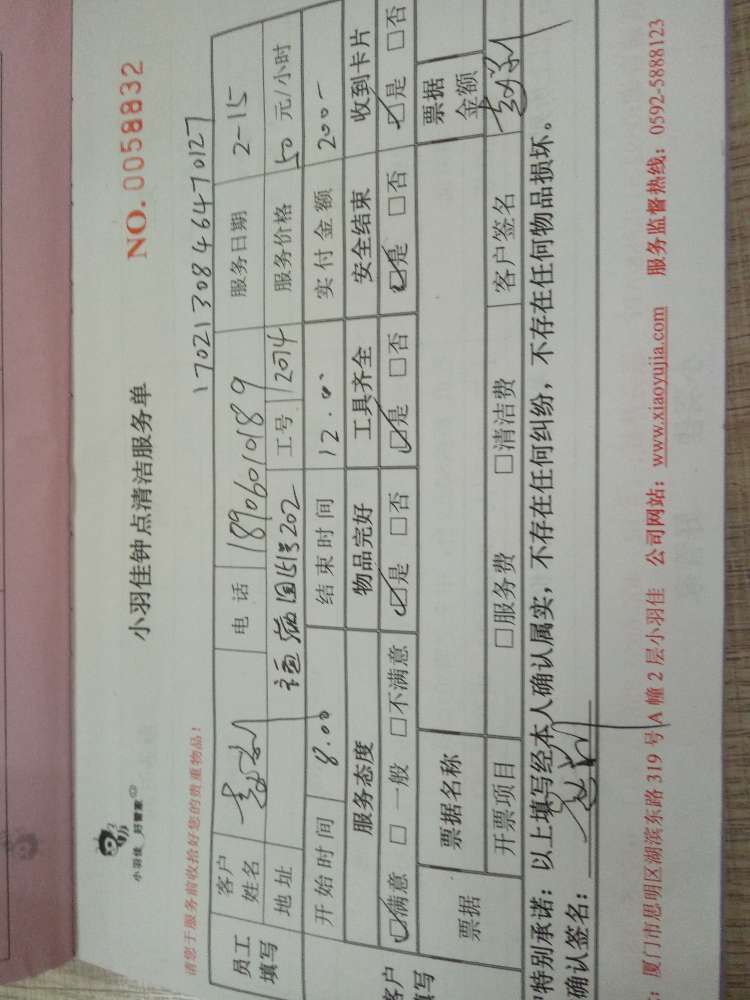 小羽佳 好管家
小羽佳钟点清洁服务单
NO.0058832
请您于服务前收拾好您的贵重物品!
1702130846470127
员工填写
客户姓名
电话 18906010189
服务日期 2-15
地址 202
工号 12014
服务价格 50 元/小时
开始时间 8.00
结束时间 12.00
实付金额 200-
客户填写
服务态度 物品完好 工具齐全 安全结束 收到卡片
☑满意 □一般 □不满意 ☑是 □否 ☑是 □否 ☑是 □否 ☑是 □否
票据 票据名称 票据金额
开票项目 □服务费 □清洁费 客户签名
特别承诺:以上填写经本人确认属实,不存在任何纠纷,不存在任何物品损坏。
确认签名:
:厦门市思明区湖滨东路 319 号 A 幢 2 层小羽佳 公司网站:www.xiaoyujia.com 服务监督热线:0592-5888123